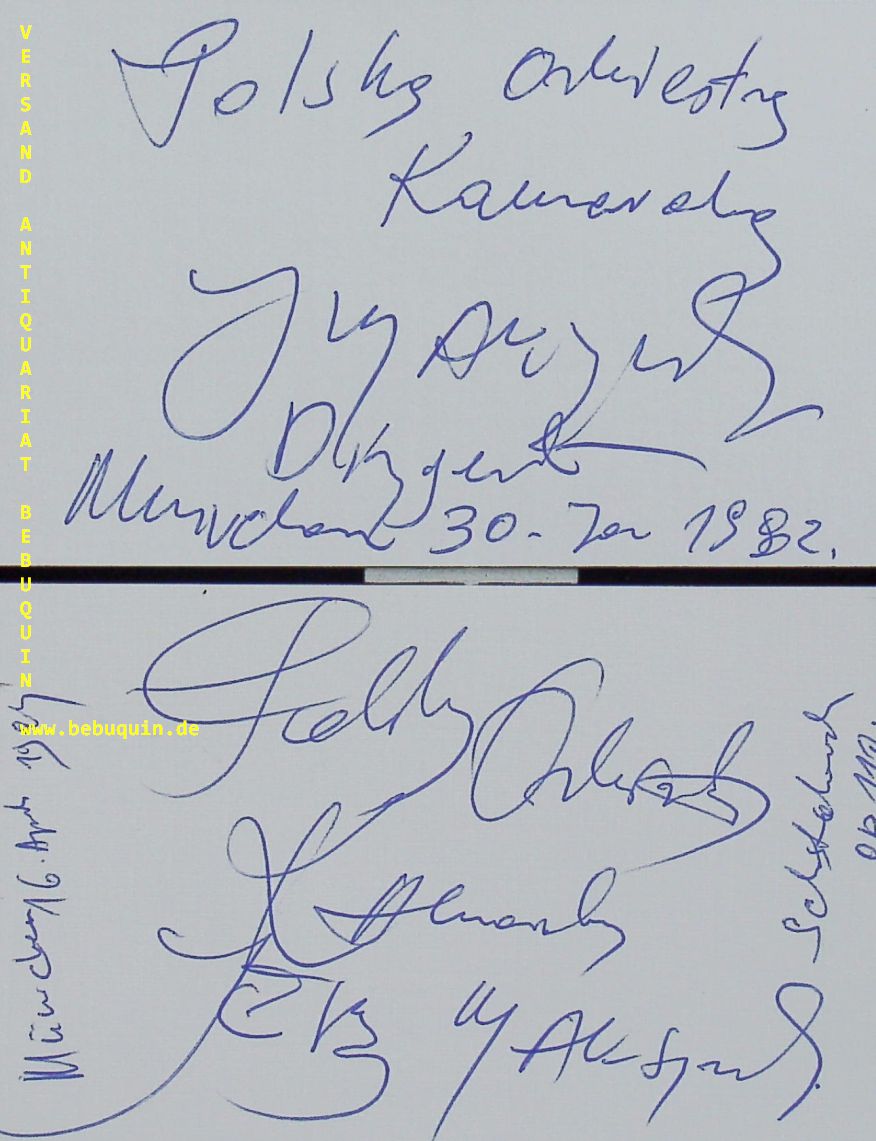 VERSAND ANTIQUARIAT BEBUQUIN
www.bebuquin.de
Polska Orkiestra
Kameralna
Jerzy Maksymiuk
Dyrygent
München 30. Jan 1982.
Polska Orkiestra
Kameralna
Jerzy Maksymiuk
München 16. April